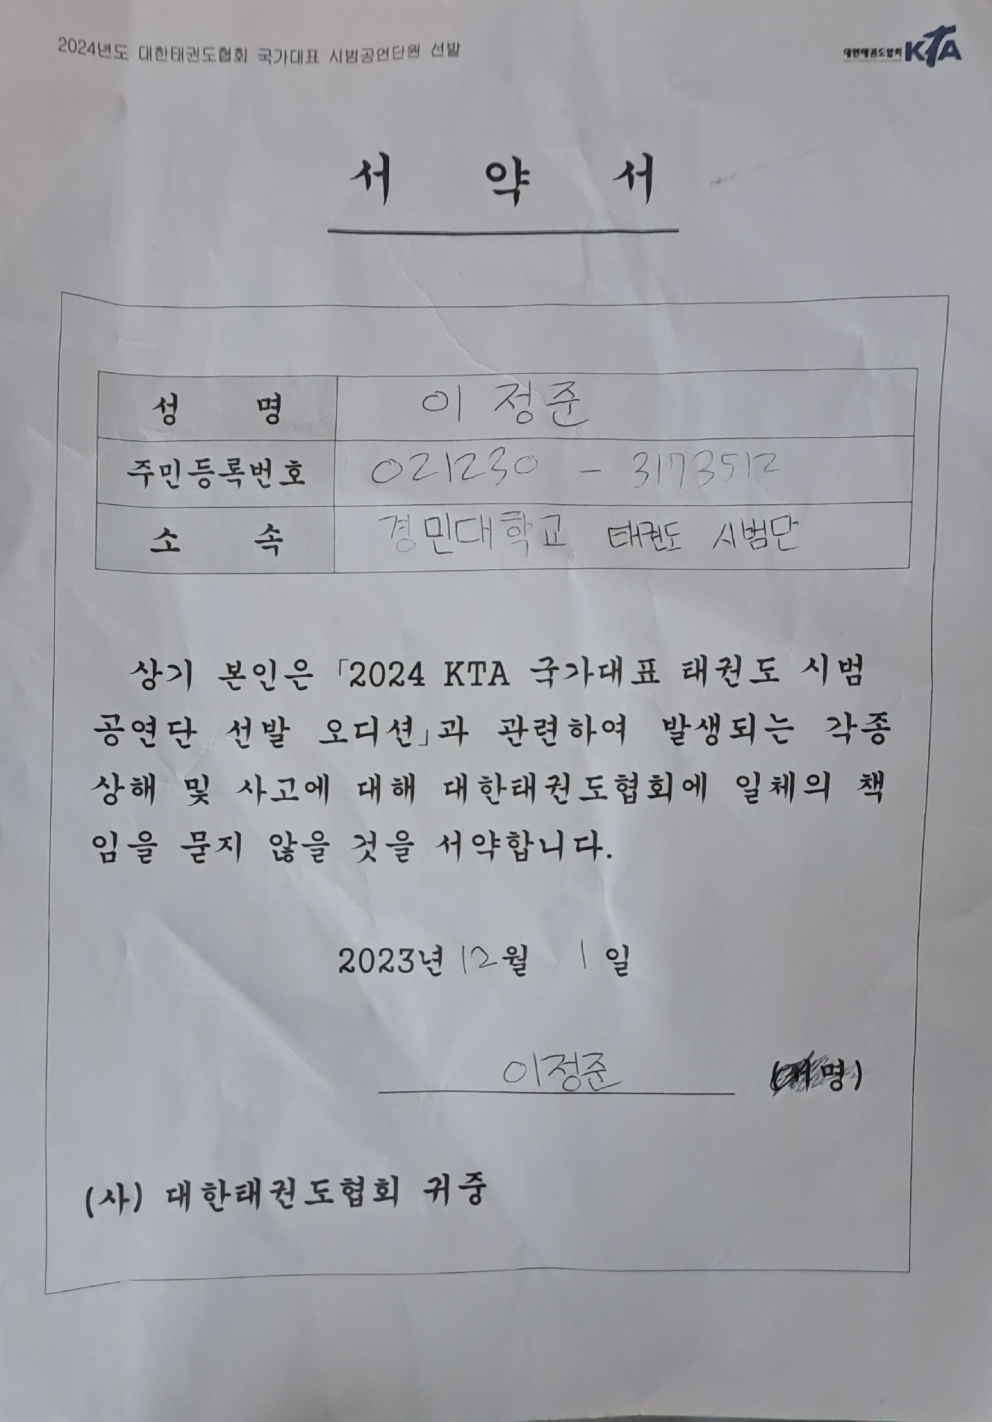 2024년도 대한태권도협회 국가대표 시범공연단원 선발
대한태권도협회 KTA
서 약 서
성 명 이 정준
주민등록번호 021230 - 3173512
소 속 경민대학교 태권도 시범단
상기 본인은 「2024 KTA 국가대표 태권도 시범
공연단 선발 오디션」과 관련하여 발생되는 각종
상해 및 사고에 대해 대한태권도협회에 일체의 책
임을 묻지 않을 것을 서약합니다.
2023년 12월 1일
이정준 (서명)
(사) 대한태권도협회 귀중